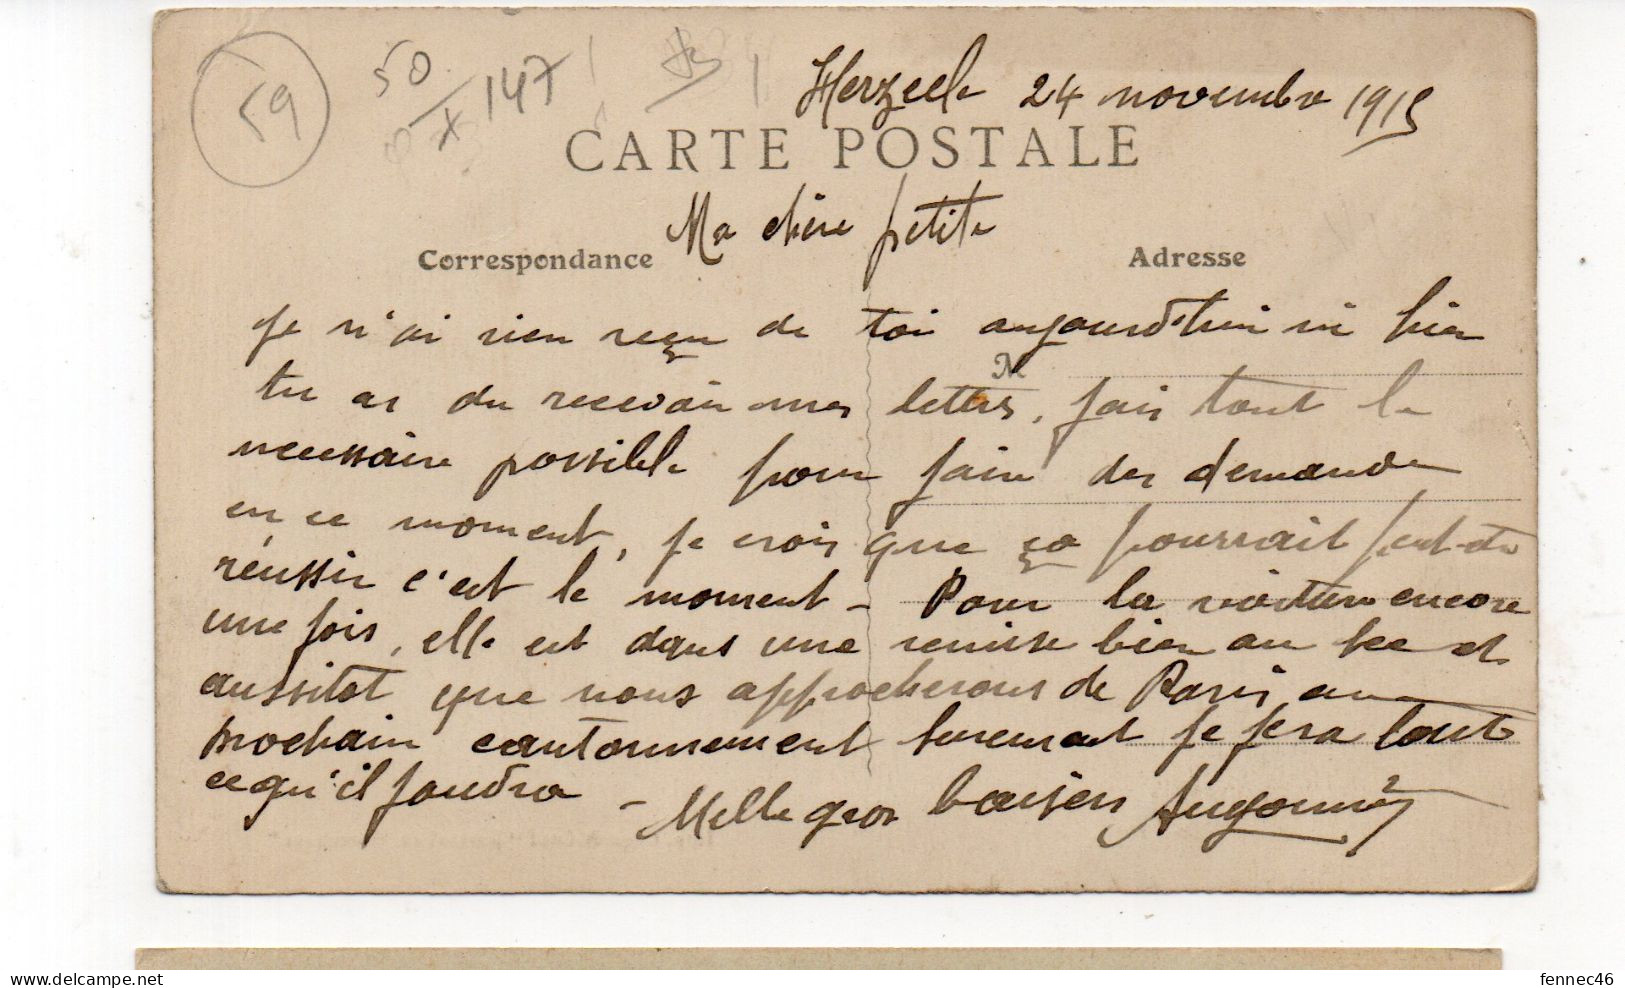 59
50
x 147
Herzeele 24 novembre 1915
CARTE POSTALE
Ma chère petite
Correspondance
Adresse
Je n'ai rien reçu de toi aujourd'hui si bien
tu as du recevoir mes lettres, fais tout le
necessaire possible pour faire des demandes
en ce moment, je crois que ça pourrait peut-etre
réussir c'est le moment - Pour la voiture encore
une fois, elle est dans une remise bien au sec et
aussitot que nous approcherons de Paris au
prochain cantonnement surement je ferai tout
ce qu'il faudra - Mille gros baisers
fennec46